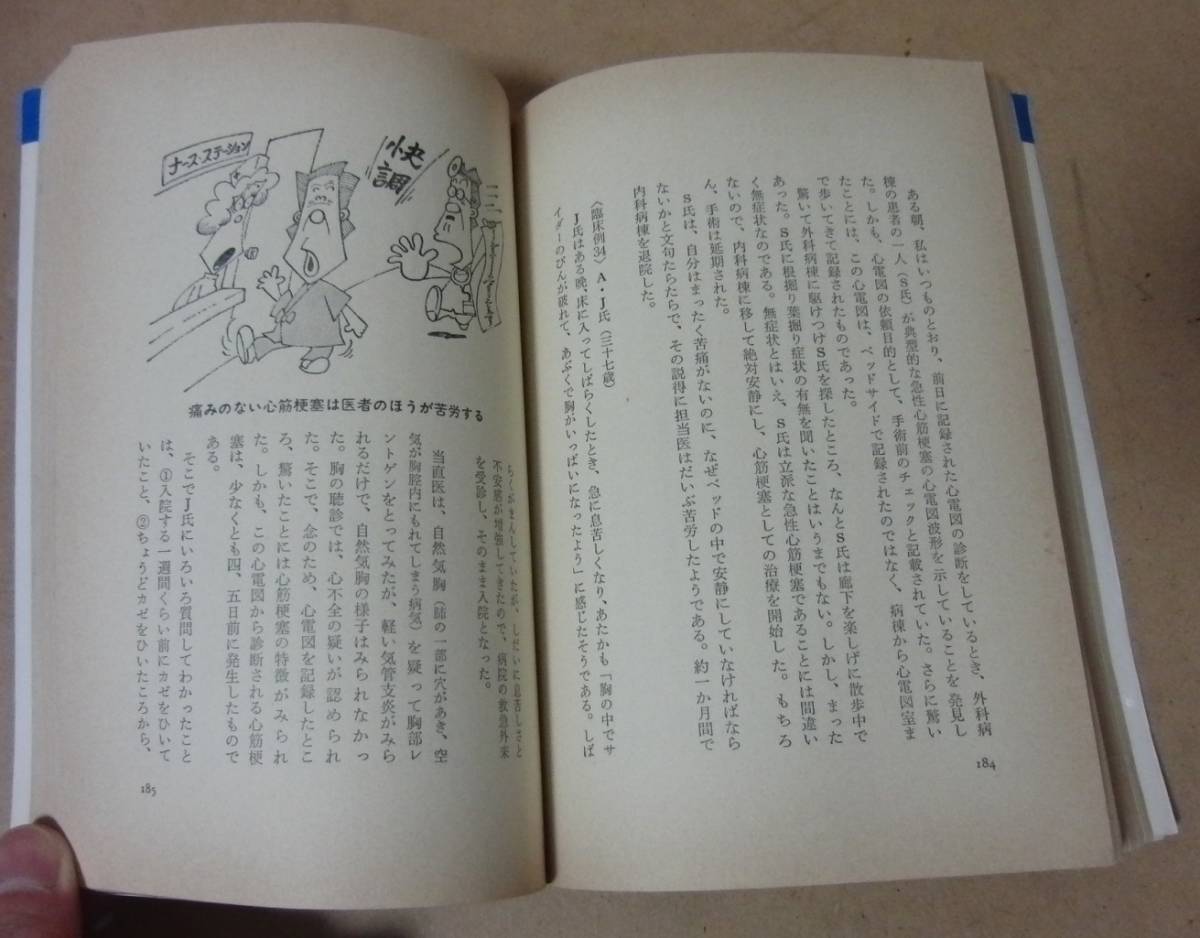 ある朝、私はいつものとおり、前日に記録された心電図の診断をしているとき、外科病
棟の患者の一人（S氏）が典型的な急性心筋梗塞の心電図波形を示していることを発見し
た。しかも、心電図の依頼目的として、手術前のチェックと記載されていた。さらに驚い
たことには、この心電図は、ベッドサイドで記録されたのではなく、病棟から心電図室ま
で歩いてきて記録されたものであった。
驚いて外科病棟に駆けつけS氏を探したところ、なんとS氏は廊下を楽しげに散歩中で
あった。S氏に根掘り葉掘り症状の有無を聞いたことはいうまでもない。しかし、まった
く無症状なのである。無症状とはいえ、S氏は立派な急性心筋梗塞であることには間違い
ないので、内科病棟に移して絶対安静にし、心筋梗塞としての治療を開始した。もちろ
ん、手術は延期された。
S氏は、自分はまったく苦痛がないのに、なぜベッドの中で安静にしていなければなら
ないかと文句たらたらで、その説得に担当医はだいぶ苦労したようである。約一か月間で
内科病棟を退院した。
〈臨床例34〉A・J氏（三十七歳）
J氏はある晩、床に入ってしばらくしたとき、急に息苦しくなり、あたかも「胸の中でサ
イダーのびんが破れて、あぶくで胸がいっぱいになったよう」に感じたそうである。しば
184
ナース・ステーション
快調
痛みのない心筋梗塞は医者のほうが苦労する
らくがまんしていたが、しだいに息苦しさと
不安感が増強してきたので、病院の救急外来
を受診し、そのまま入院となった。
当直医は、自然気胸（肺の一部に穴があき、空
気が胸腔内にもれてしまう病気）を疑って胸部レ
ントゲンをとってみたが、軽い気管支炎がみら
れるだけで、自然気胸の様子はみられなかっ
た。胸の聴診では、心不全の疑いが認められ
た。そこで、念のため、心電図を記録したとこ
ろ、驚いたことには心筋梗塞の特徴がみられ
た。しかも、この心電図から診断される心筋梗
塞は、少なくとも四、五日前に発生したもので
ある。
そこでJ氏にいろいろ質問してわかったこと
は、①入院する一週間くらい前にカゼをひいて
いたこと、②ちょうどカゼをひいたころから、
185